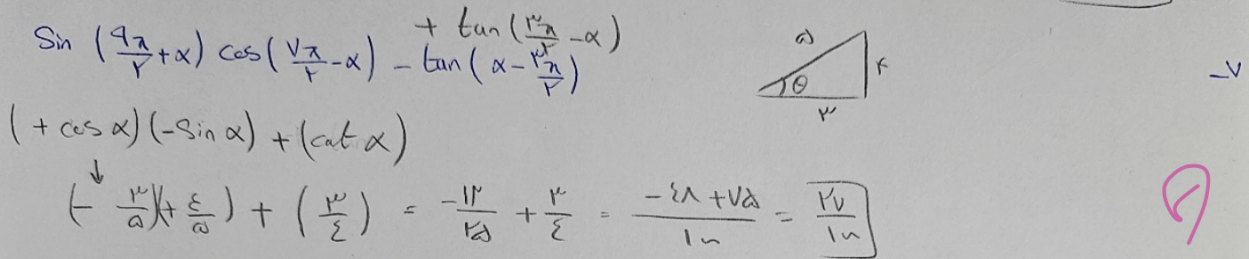 ۷-
sin (۹π/۲ + α) cos (۷π/۲ - α) - tan (α - ۳π/۲)
+ tan (۳π/۲ - α)
۵ ۴ θ ۳
(+ cos α) (- sin α) + (cot α)
↓
(- ۳/۵)(+ ۴/۵) + (۳/۴) = -۱۲/۲۵ + ۳/۴ = (-۴۸ + ۷۵)/۱۰۰ = ۲۷/۱۰۰